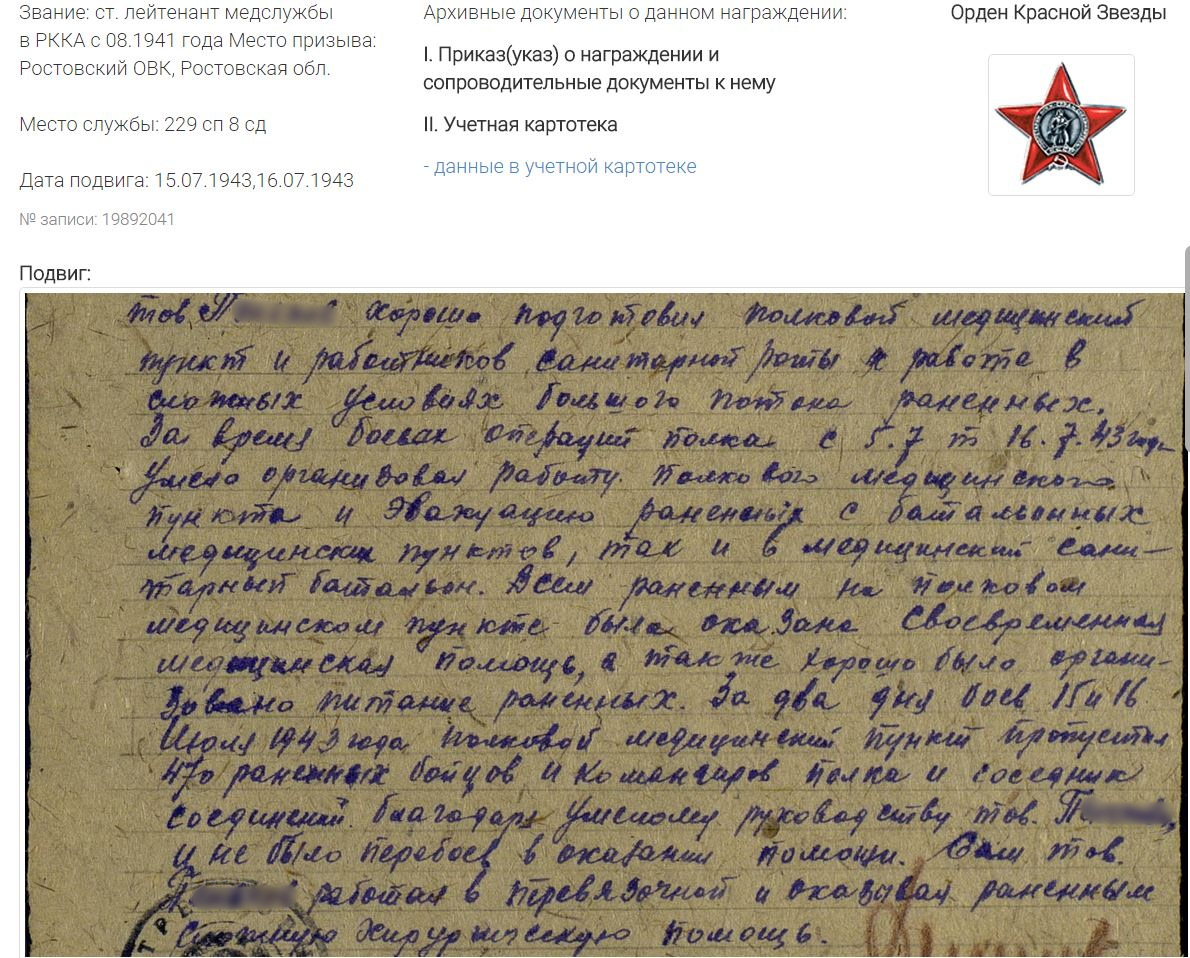 Звание: ст. лейтенант медслужбы
в РККА с 08.1941 года Место призыва:
Ростовский ОВК, Ростовская обл.
Место службы: 229 сп 8 сд
Дата подвига: 15.07.1943,16.07.1943
№ записи: 19892041
Архивные документы о данном награждении:
I. Приказ(указ) о награждении и
сопроводительные документы к нему
II. Учетная картотека
- данные в учетной картотеке
Орден Красной Звезды
Подвиг:
тов. хорошо подготовил полковой медицинский
пункт и работников санитарной роты к работе в
сложных условиях большого потока раненных.
За время боевых операций полка с 5.7 п 16.7.43 года
Умело организовал работу полкового медицинского
пункта и Эвакуацию раненных с батальонных
медицинских пунктов, так и в медицинский сани-
тарный батальон. Всем раненным на полковом
медицинском пункте была оказана Своевременная
медицинская помощь, а также хорошо было органи-
зовано питание раненных. За два дня боев 15 и 16
Июля 1943 года полковой медицинский пункт пропустил
470 раненных бойцов и командиров полка и соседних
соединений. благодаря Умелому руководству тов.
и не было перебоев в оказании помощи. Сам тов.
работал в перевязочной и оказывал раненным
сложную хирургическую помощь.